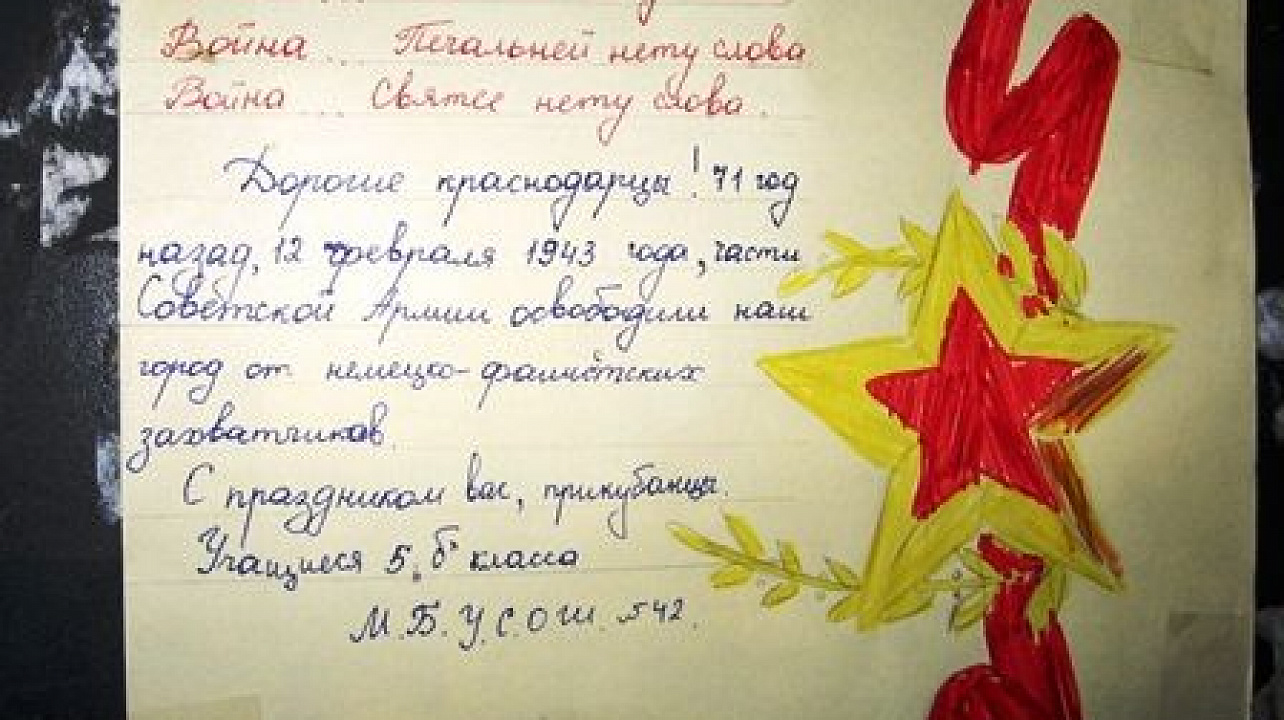 Война ... Печальней нету слова
Война ... Святее нету слова.
Дорогие краснодарцы! 71 год
назад, 12 февраля 1943 года, части
Советской Армии освободили наш
город от немецко-фашистских
захватчиков.
С праздником вас, прикубанцы.
Учащиеся 5 „б" класса
М.Б.У.С.О.Ш. №42.